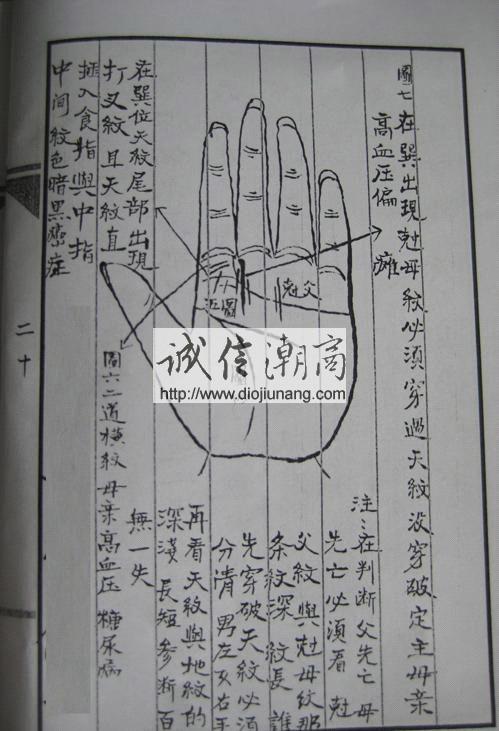 圖七 在巽出現尅母紋必須穿過天紋没穿破定主母亲
高血压偏瘫
注：在判断父先亡母
先亡必須看尅
父紋與尅母紋那
条紋深 紋長 誰
先穿破天紋必須
分清 男左女右手
再看天紋與地紋的
深淺 長短 参断百
無一失
尅父
圖五
圖六二道横紋母亲高血压 糖尿病
在巽位天紋尾部出現
打叉紋且天紋直
插入食指與中指
中间紋色暗黑癌症
二十
诚信潮商
http://www.diojiunang.com/